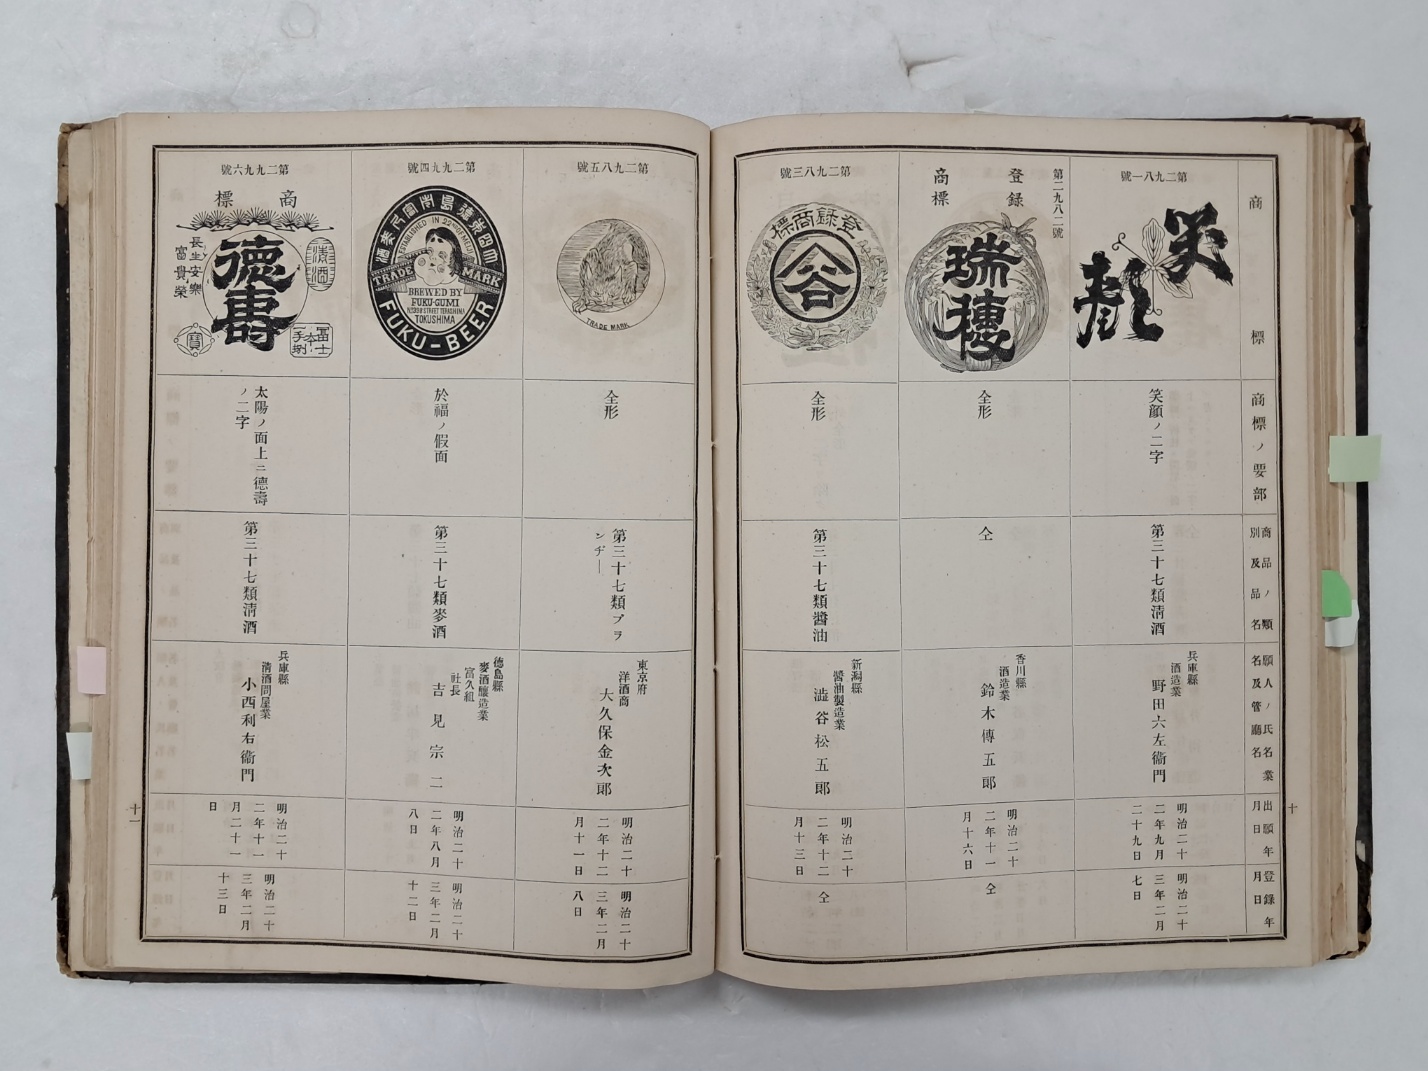 商標
商標ノ要部
商品ノ類
別及品名
願人ノ氏名業
名及管廳名
出願年
月日
登錄年
月日
十
第二九八一號
笑
顏
笑顏ノ二字
第三十七類淸酒
兵庫縣
酒造業
野田六左衞門
明治二十
二年九月
二十九日
明治二十
三年二月
七日
第二九八二號
登錄
商標
瑞穗
全形
仝
香川縣
酒造業
鈴木傳五郞
明治二十
二年十一
月十六日
仝
第二九八三號
登錄商標
谷
全形
第三十七類醬油
新潟縣
醬油製造業
澁谷松五郞
明治二十
二年十二
月十三日
仝
第二九八五號
TRADE MARK
全形
第三十七類ブラ
ンヂー
東京府
洋酒商
大久保金次郞
明治二十
二年十二
月十一日
明治二十
三年二月
八日
第二九九四號
ESTABLISHED IN 22
TRADE MARK
BREWED BY
FUKU-GUMI
STREET
TOKUSHIMA
FUKU-BEER
於福ノ假面
第三十七類麥酒
德島縣
麥酒釀造業
富久組
社長
吉見宗二
明治二十
二年八月
八日
明治二十
三年二月
十二日
第二九九六號
商標
淸酒
德壽
長生安樂
富貴榮
寶
富士
一本
手捌
太陽ノ面上ニ德壽
ノ二字
第三十七類淸酒
兵庫縣
淸酒問屋業
小西利右衞門
明治二十
二年十一
月二十一
日
明治二十
三年二月
十三日
十一